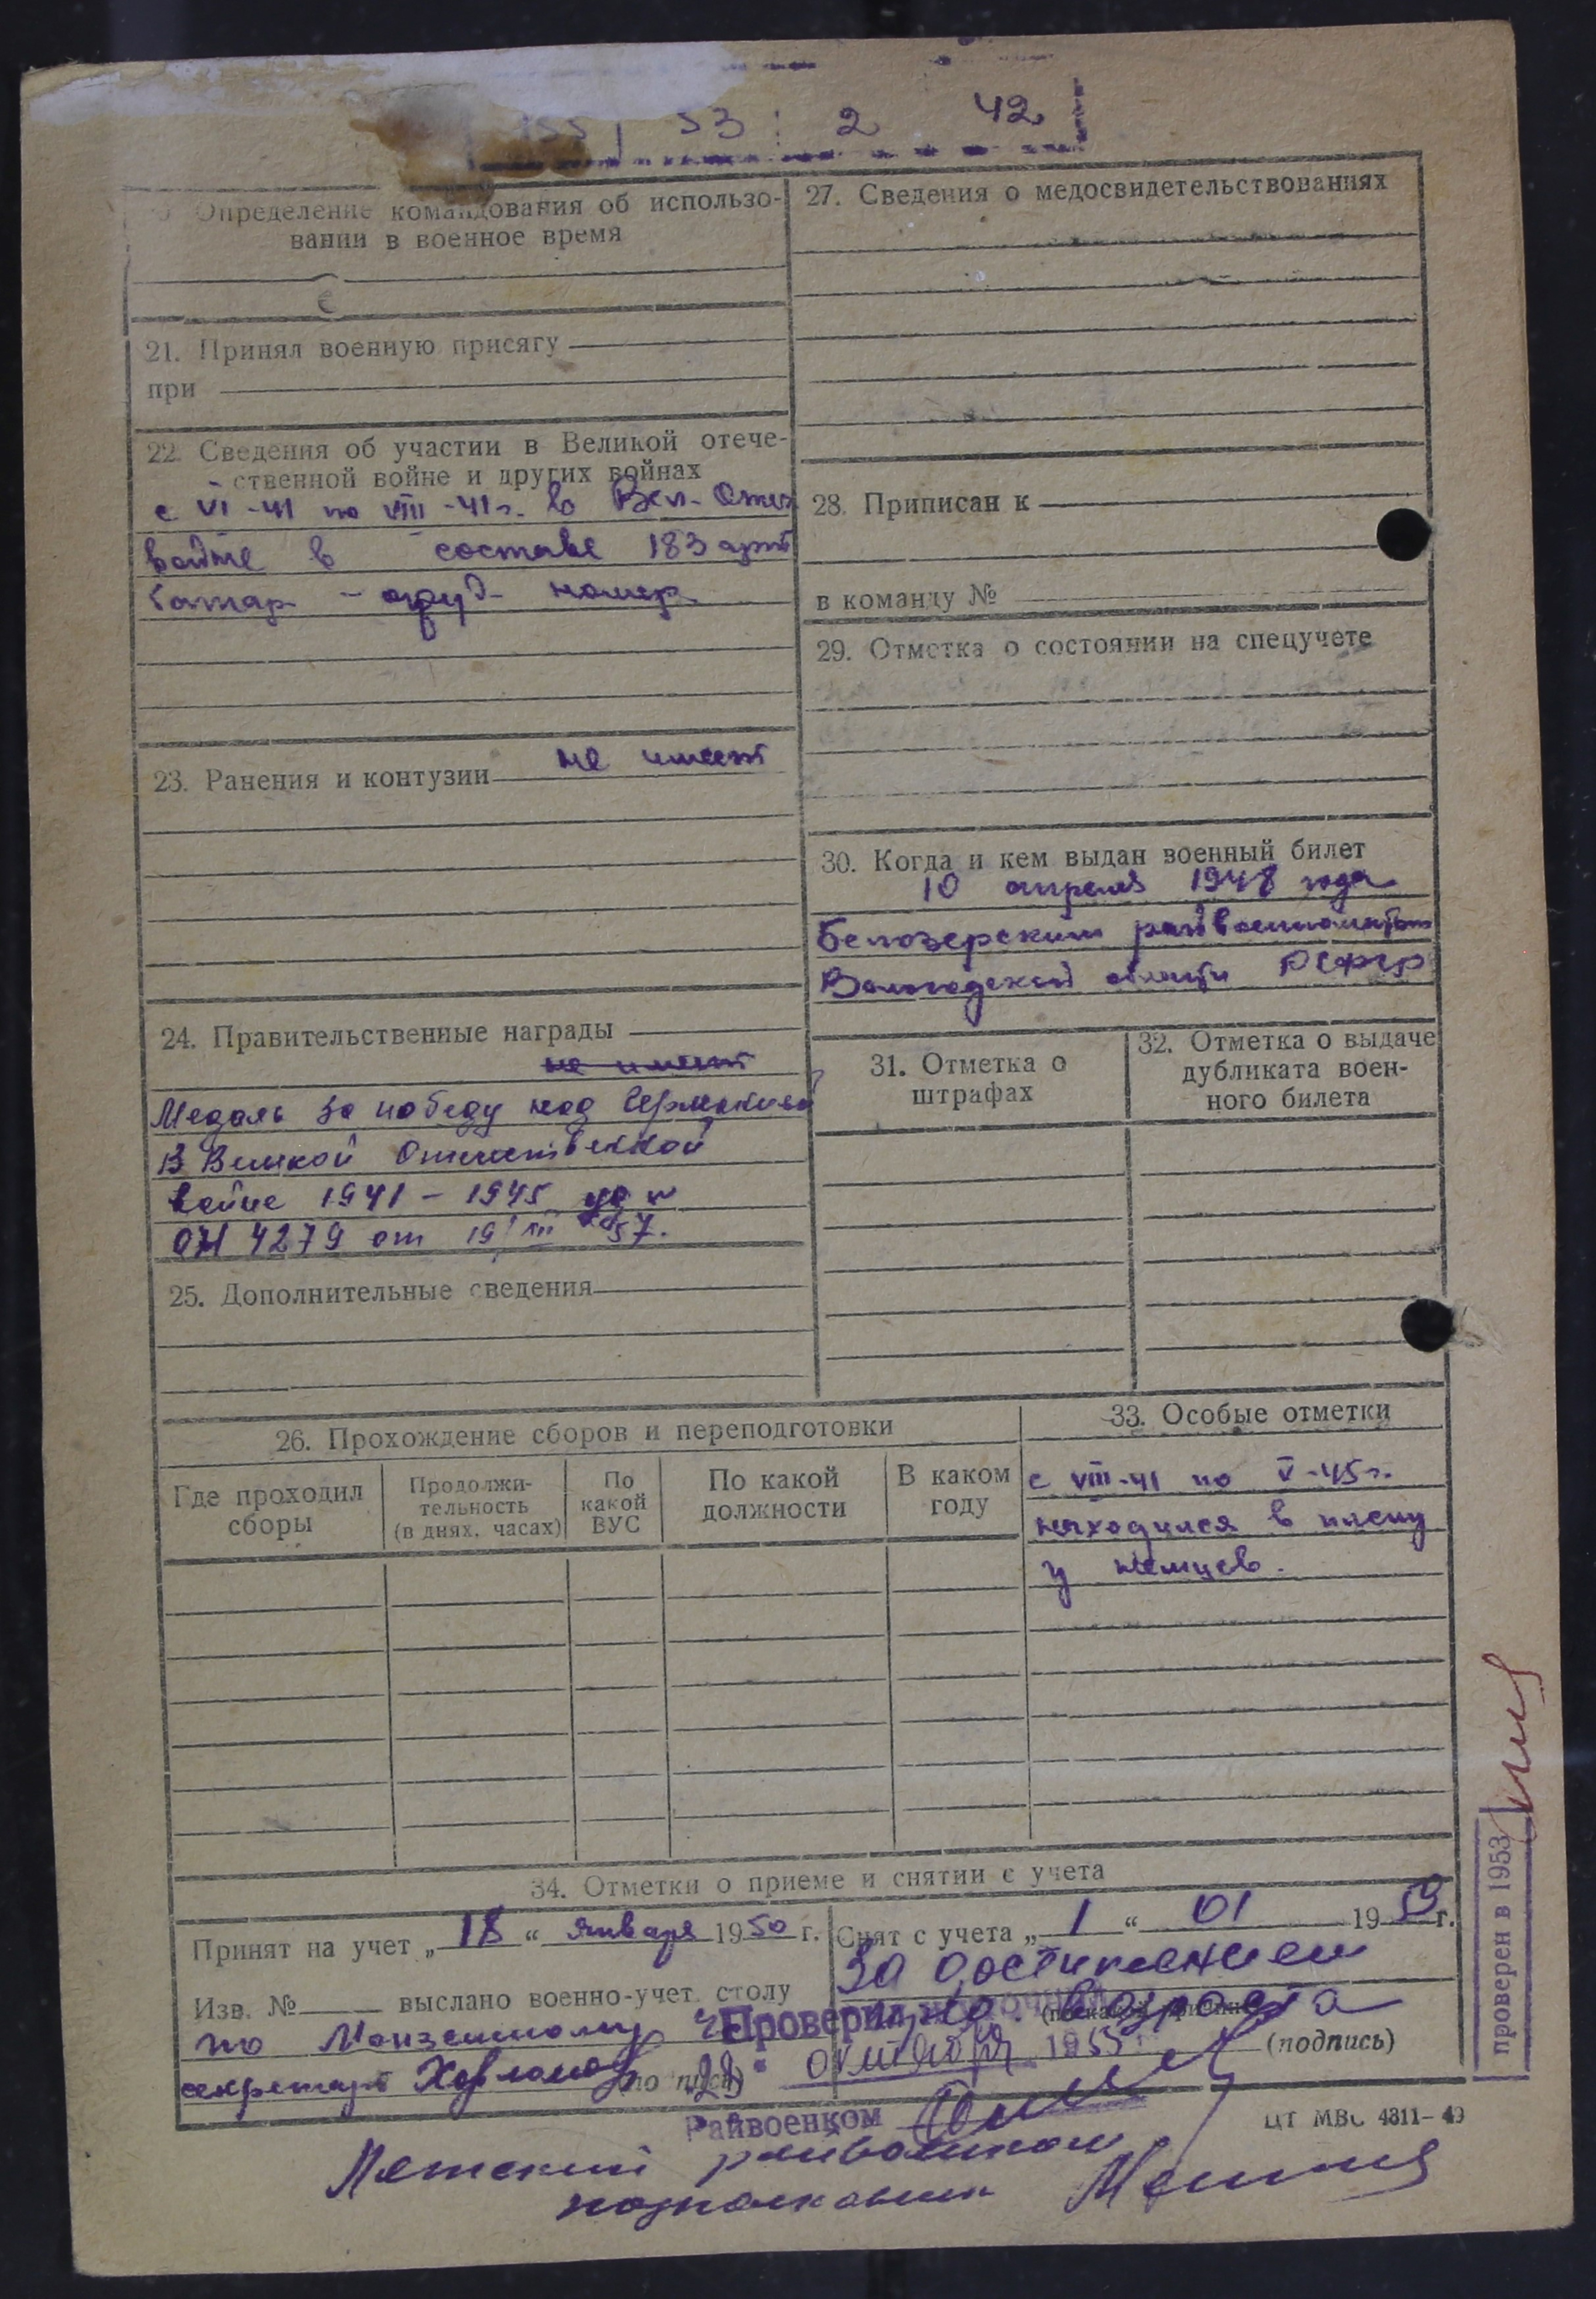 53 2 42
Определение командования об использо-
вании в военное время
21. Принял военную присягу
при
22. Сведения об участии в Великой отече-
ственной войне и других войнах
с VI-41 по VIII-41 г. в Вел. Отеч
войне в составе 183 арт
батар - оруд. номер.
23. Ранения и контузии не имеет
24. Правительственные награды
не имеет
Медаль За победу над Германией
В Великой Отечественной
войне 1941 - 1945
4279 от 19/III 57.
25. Дополнительные сведения
27. Сведения о медосвидетельствованиях
28. Приписан к
в команду №
29. Отметка о состоянии на спецучете
30. Когда и кем выдан военный билет
10 апреля 1948 года
Белозерским райвоенкоматом
Вологодской области РСФСР
31. Отметка о
штрафах
32. Отметка о выдаче
дубликата воен-
ного билета
26. Прохождение сборов и переподготовки
Где проходил
сборы
Продолжи-
тельность
(в днях, часах)
По
какой
ВУС
По какой
должности
В каком
году
33. Особые отметки
с VIII-41 по V-45 г.
находился в плену
у немцев.
34. Отметки о приеме и снятии с учета
Принят на учет „ 18 “ января 1950 г.
Изв. № выслано военно-учет. столу
по
секретарь
Снят с учета „ 1 “ 01 1959 г.
За достижением
возраста
(подпись)
Проверил
октября 1953
Райвоенком
ЦТ МВС 4811-49
райвоенком
подполковник
проверен в 1953